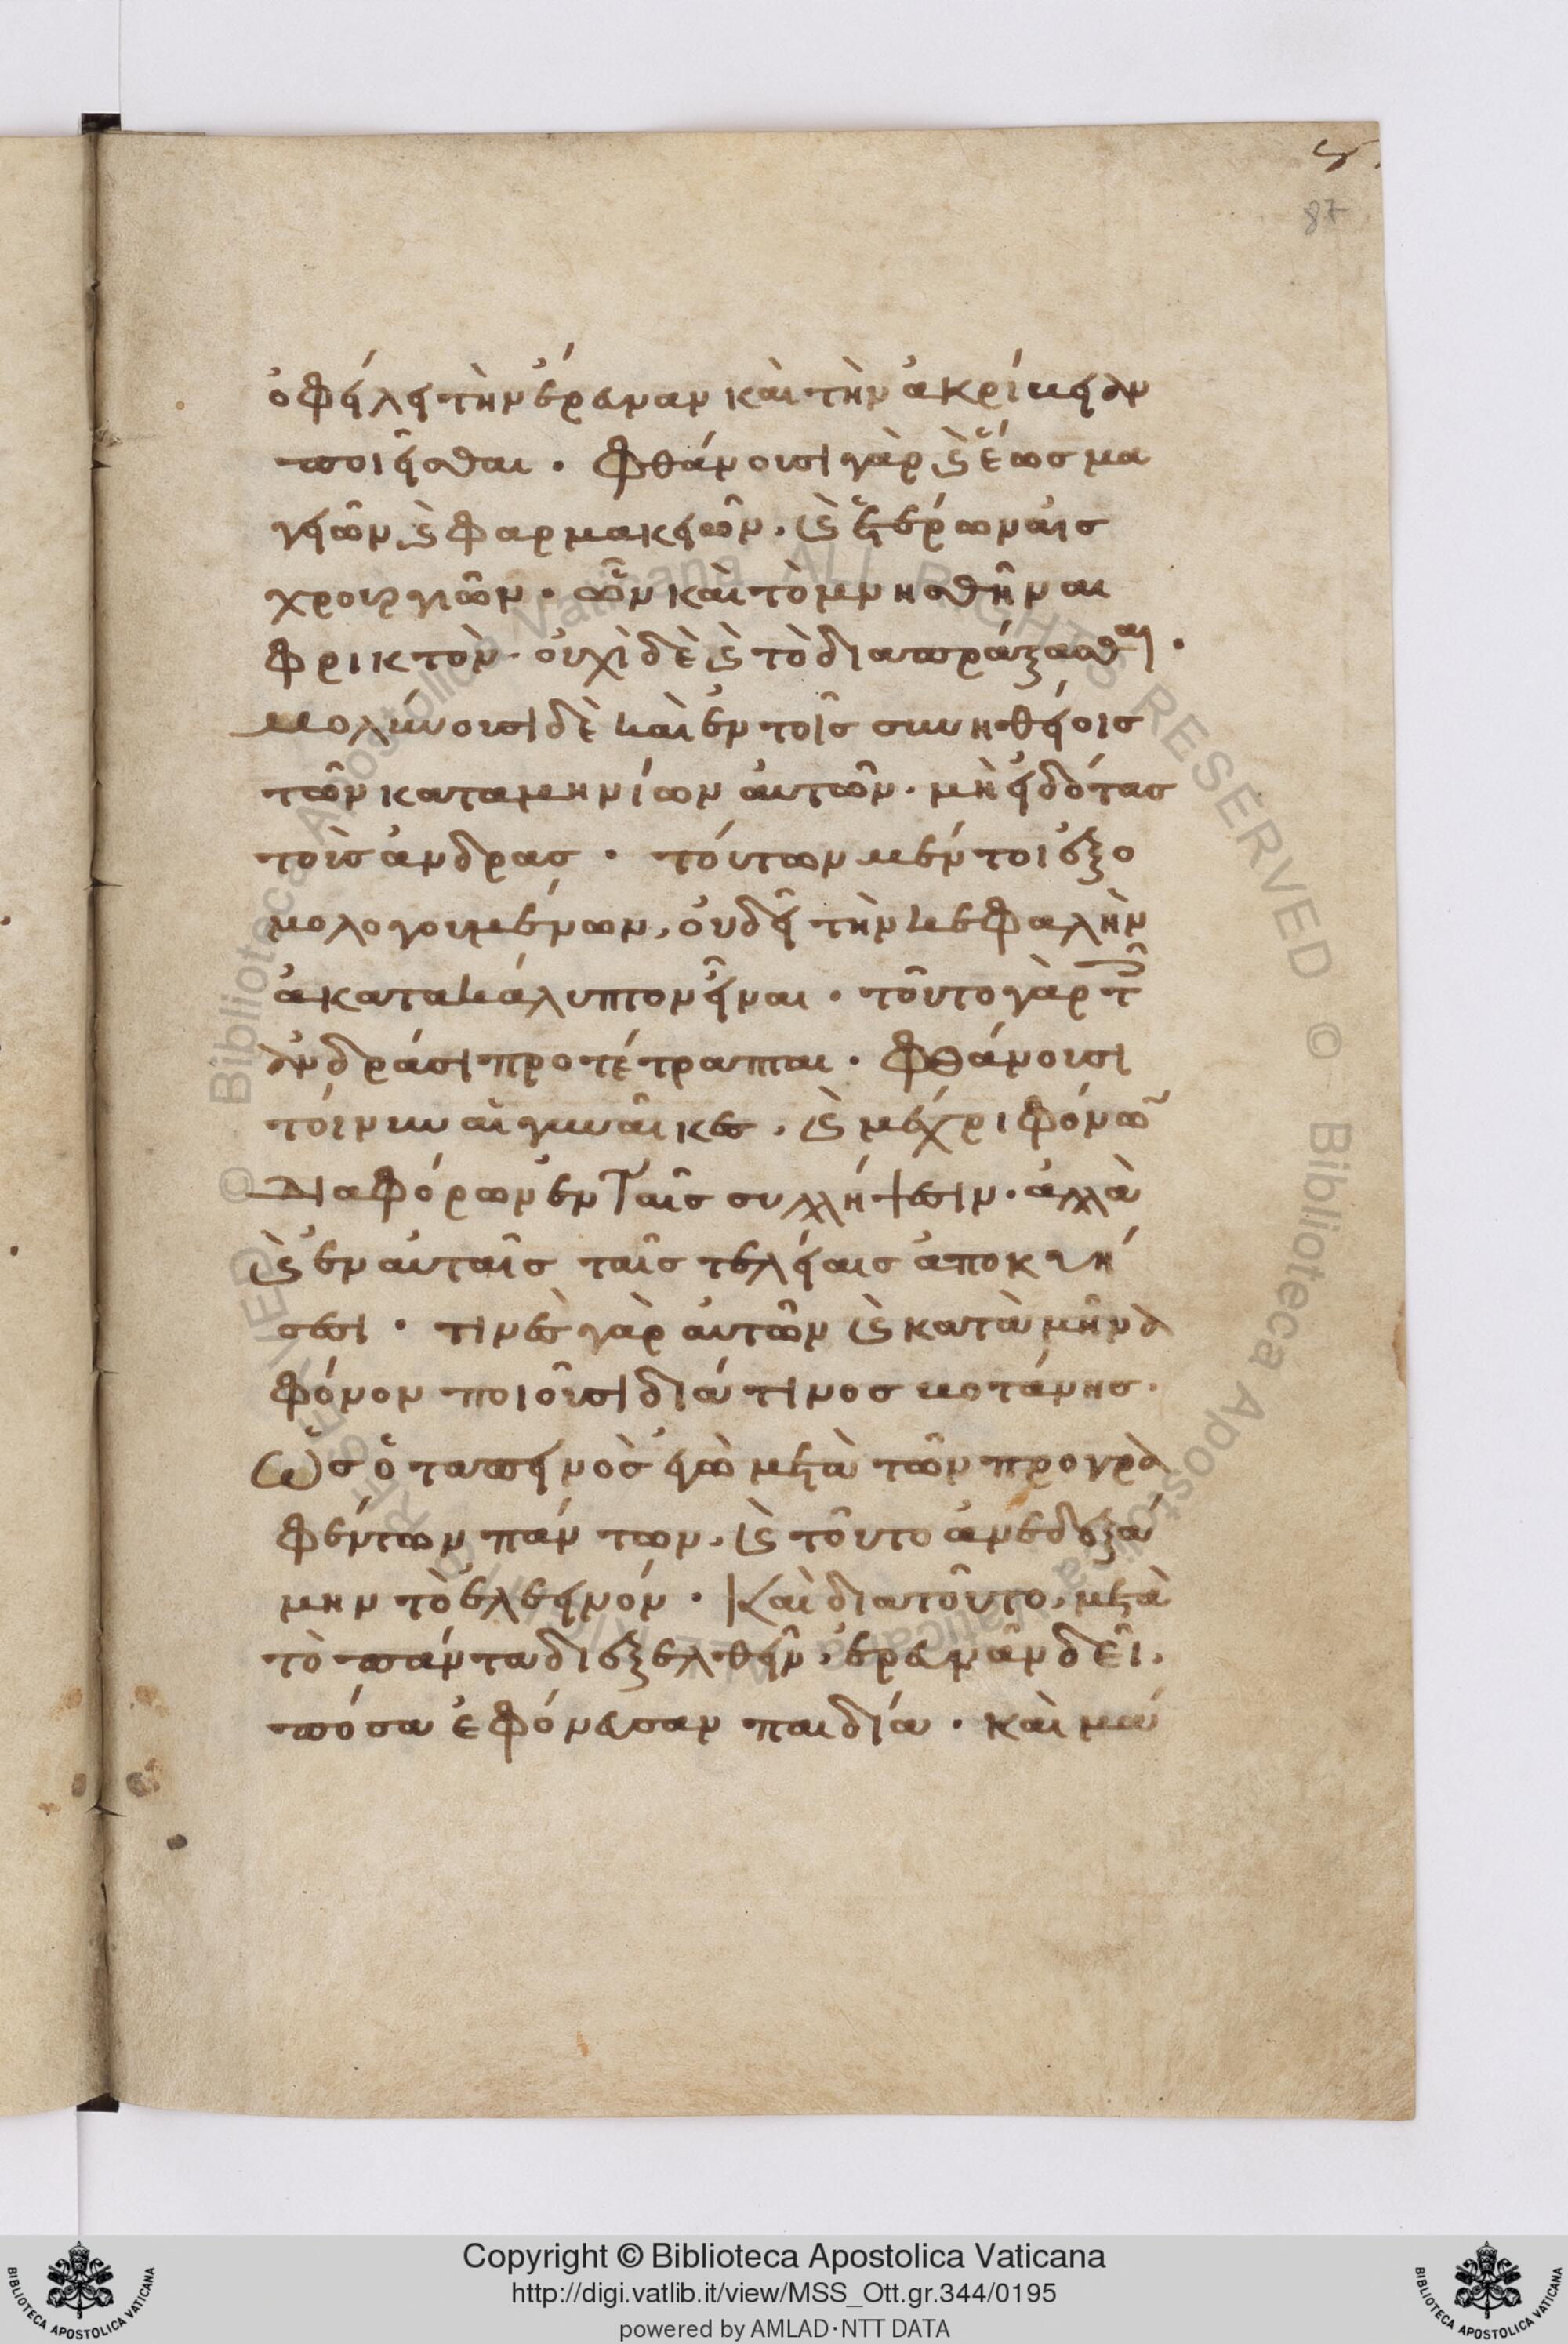 ϛ.
87
ὀφείλει τὴν ἔρευναν καὶ τὴν ἀκρίβειαν
ποιεῖσθαι. φθάνουσι γὰρ ϗ ἕως μα
γειῶν ϗ φαρμακειῶν, ϗ ἑτέρων αἰσ
χρουργιῶν. ὧν καὶ τὸ μνησθῆναι
φρικτὸν. οὐχὶ δὲ ϗ τὸ διαπράξασθαι.
μολύνουσι δὲ καὶ ἐν τοῖς συνηθείοις
τῶν καταμηνίων αὐτῶν. μὴ εἰδότας
τοὺς ἄνδρας. τούτων μέντοι ἐξο
μολογουμένων, οὐδεῖ τὴν κεφαλὴν
ἀκατακάλυπτον εἶναι. τοῦτο γὰρ τοῖς
ἀνδράσι προτέτραπται. φθάνουσι
τοίνυν αἱ γυναῖκες, ϗ μέχρι φόνων
διαφόρων ἐν ταῖς συλλήψεσιν. ἀλλὰ
ϗ ἐν αὐταῖς ταῖς τελείαις ἀποκυή
σεσι. τινὲς γὰρ αὐτῶν ϗ κατὰ μῆνα
φόνον ποιοῦσι διά τινος βοτάνης.
Ὡς ὁ ταπεινὸς ἐγὼ μετὰ τῶν προγρα
φέντων πάντων, ϗ τοῦτο ἀνεδεξά
μην τὸ ἐλεεινόν. Καὶ διατοῦτο, μετὰ
τὸ πάντα διεξελθεῖν, ἐρευνᾶν δεῖ.
πόσα ἐφόνευσαν παιδία. καὶ μά
Copyright © Biblioteca Apostolica Vaticana
http://digi.vatlib.it/view/MSS_Ott.gr.344/0195
powered by AMLAD·NTT DATA
BIBLIOTECA APOSTOLICA VATICANA
BIBLIOTECA APOSTOLICA VATICANA